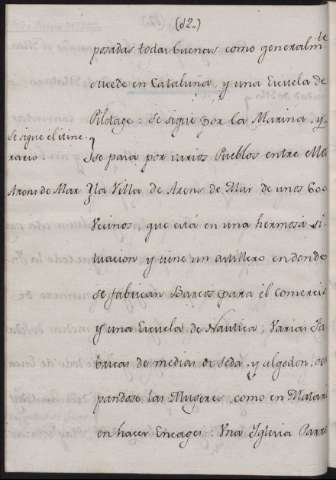 (82.)
posadas todas buenas como generalm.te
sucede en Cataluña, y una Escuela de
Pilotage: se sigue por la Marina, y
Se sigue el itine
rario.
se pasa por varios Pueblos entre ellos
Arens de Mar
la Villa de Arens de Mar de unos 600
Vecinos, que está en una hermosa si-
tuacion y tiene un astillero en donde
se fabrican Barcos para el comercio
y una Escuela de Nautica; Varias Fa-
bricas de medias de seda, y algodon, ocu
pandose las Mugeres, como en Mataró
en hacer Encages: Una Iglesia Parro